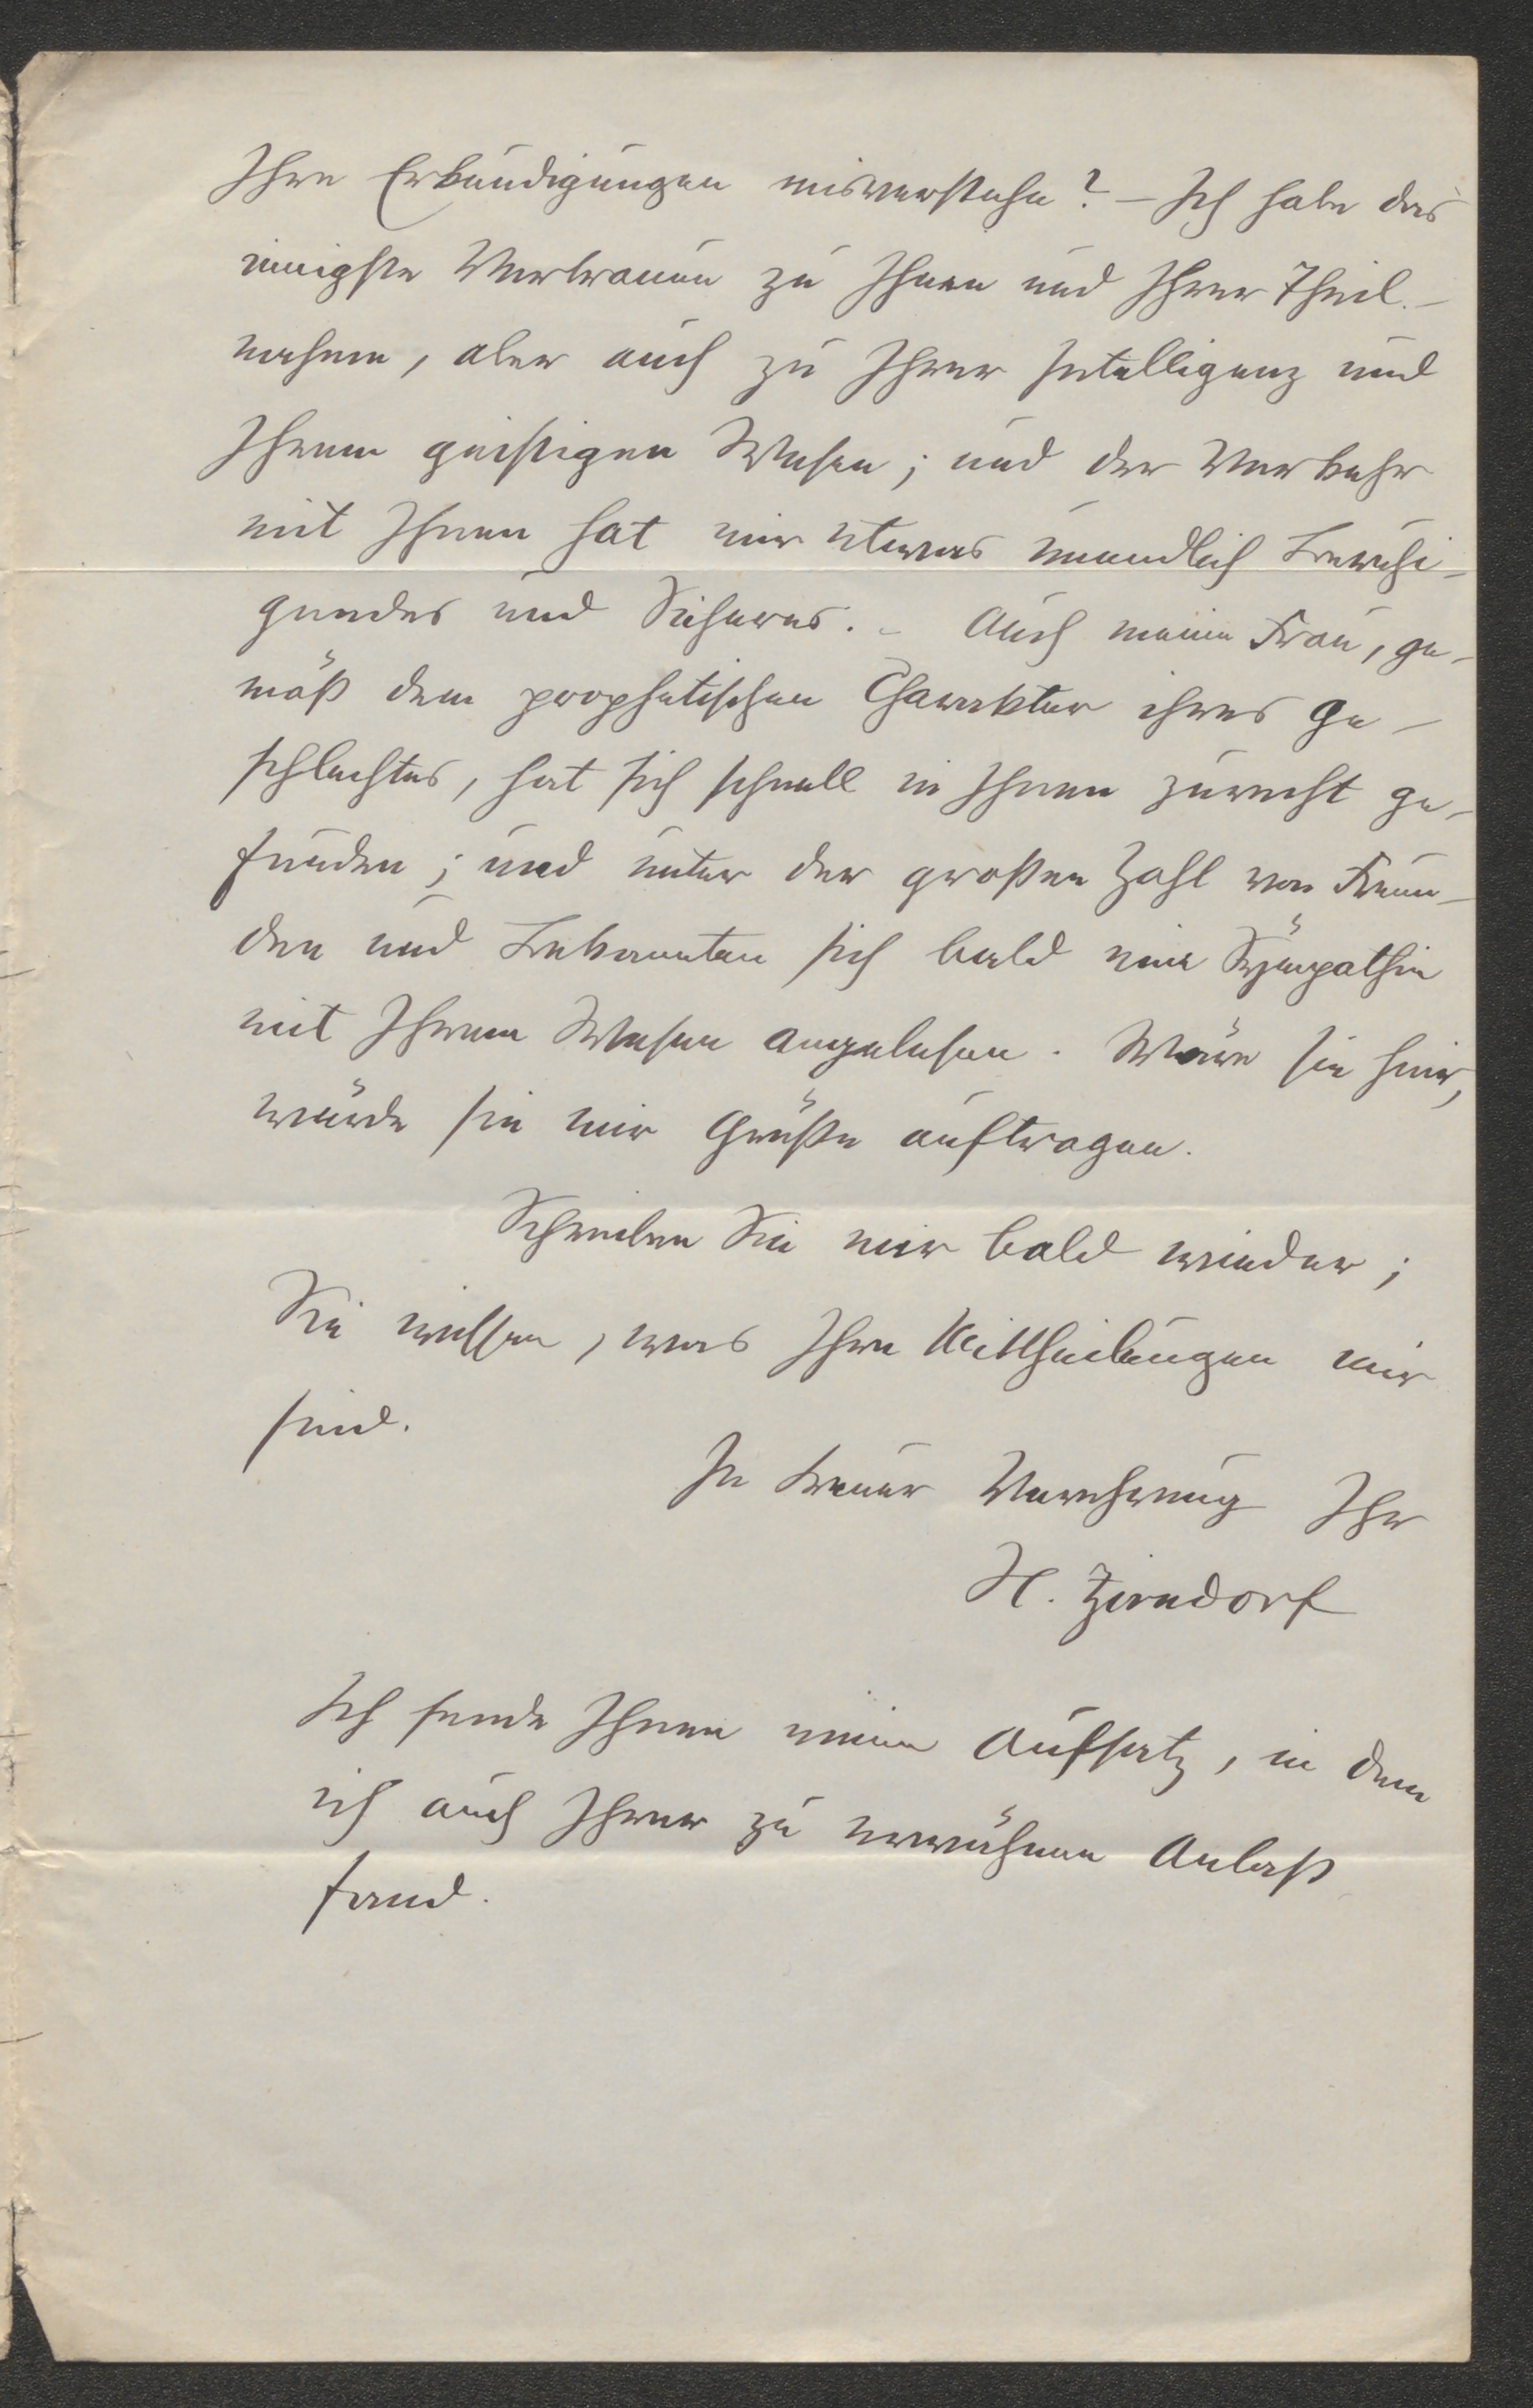 Ihre Erkundigungen misverstehe? – Ich habe das
innigste Vertrauen zu Ihnen und Ihrer Theil-
nahme, aber auch zu Ihrer Intelligenz und
Ihrem geistigen Wesen; und der Verkehr
mit Ihnen hat mir etwas unendlich Beruhi-
gendes und Sicheres. – Auch meine Frau, ge-
mäß dem prophetischen Charakter ihres Ge-
schlechtes, hat sich schnell in Ihnen zurecht ge-
funden; und unter der großen Zahl von Freun-
den und Bekannten sich bald eine Sympathie
mit Ihrem Wesen angelesen. Wäre sie hier,
würde sie mir Grüße auftragen.
Schreiben Sie mir bald wieder;
Sie wissen, was Ihre Mittheilungen mir
sind.
In treuer Verehrung Ihr
H. Zirndorf
Ich sende Ihnen meinen Aufsatz, in dem
ich auch Ihrer zu erwähnen Anlaß
fand.